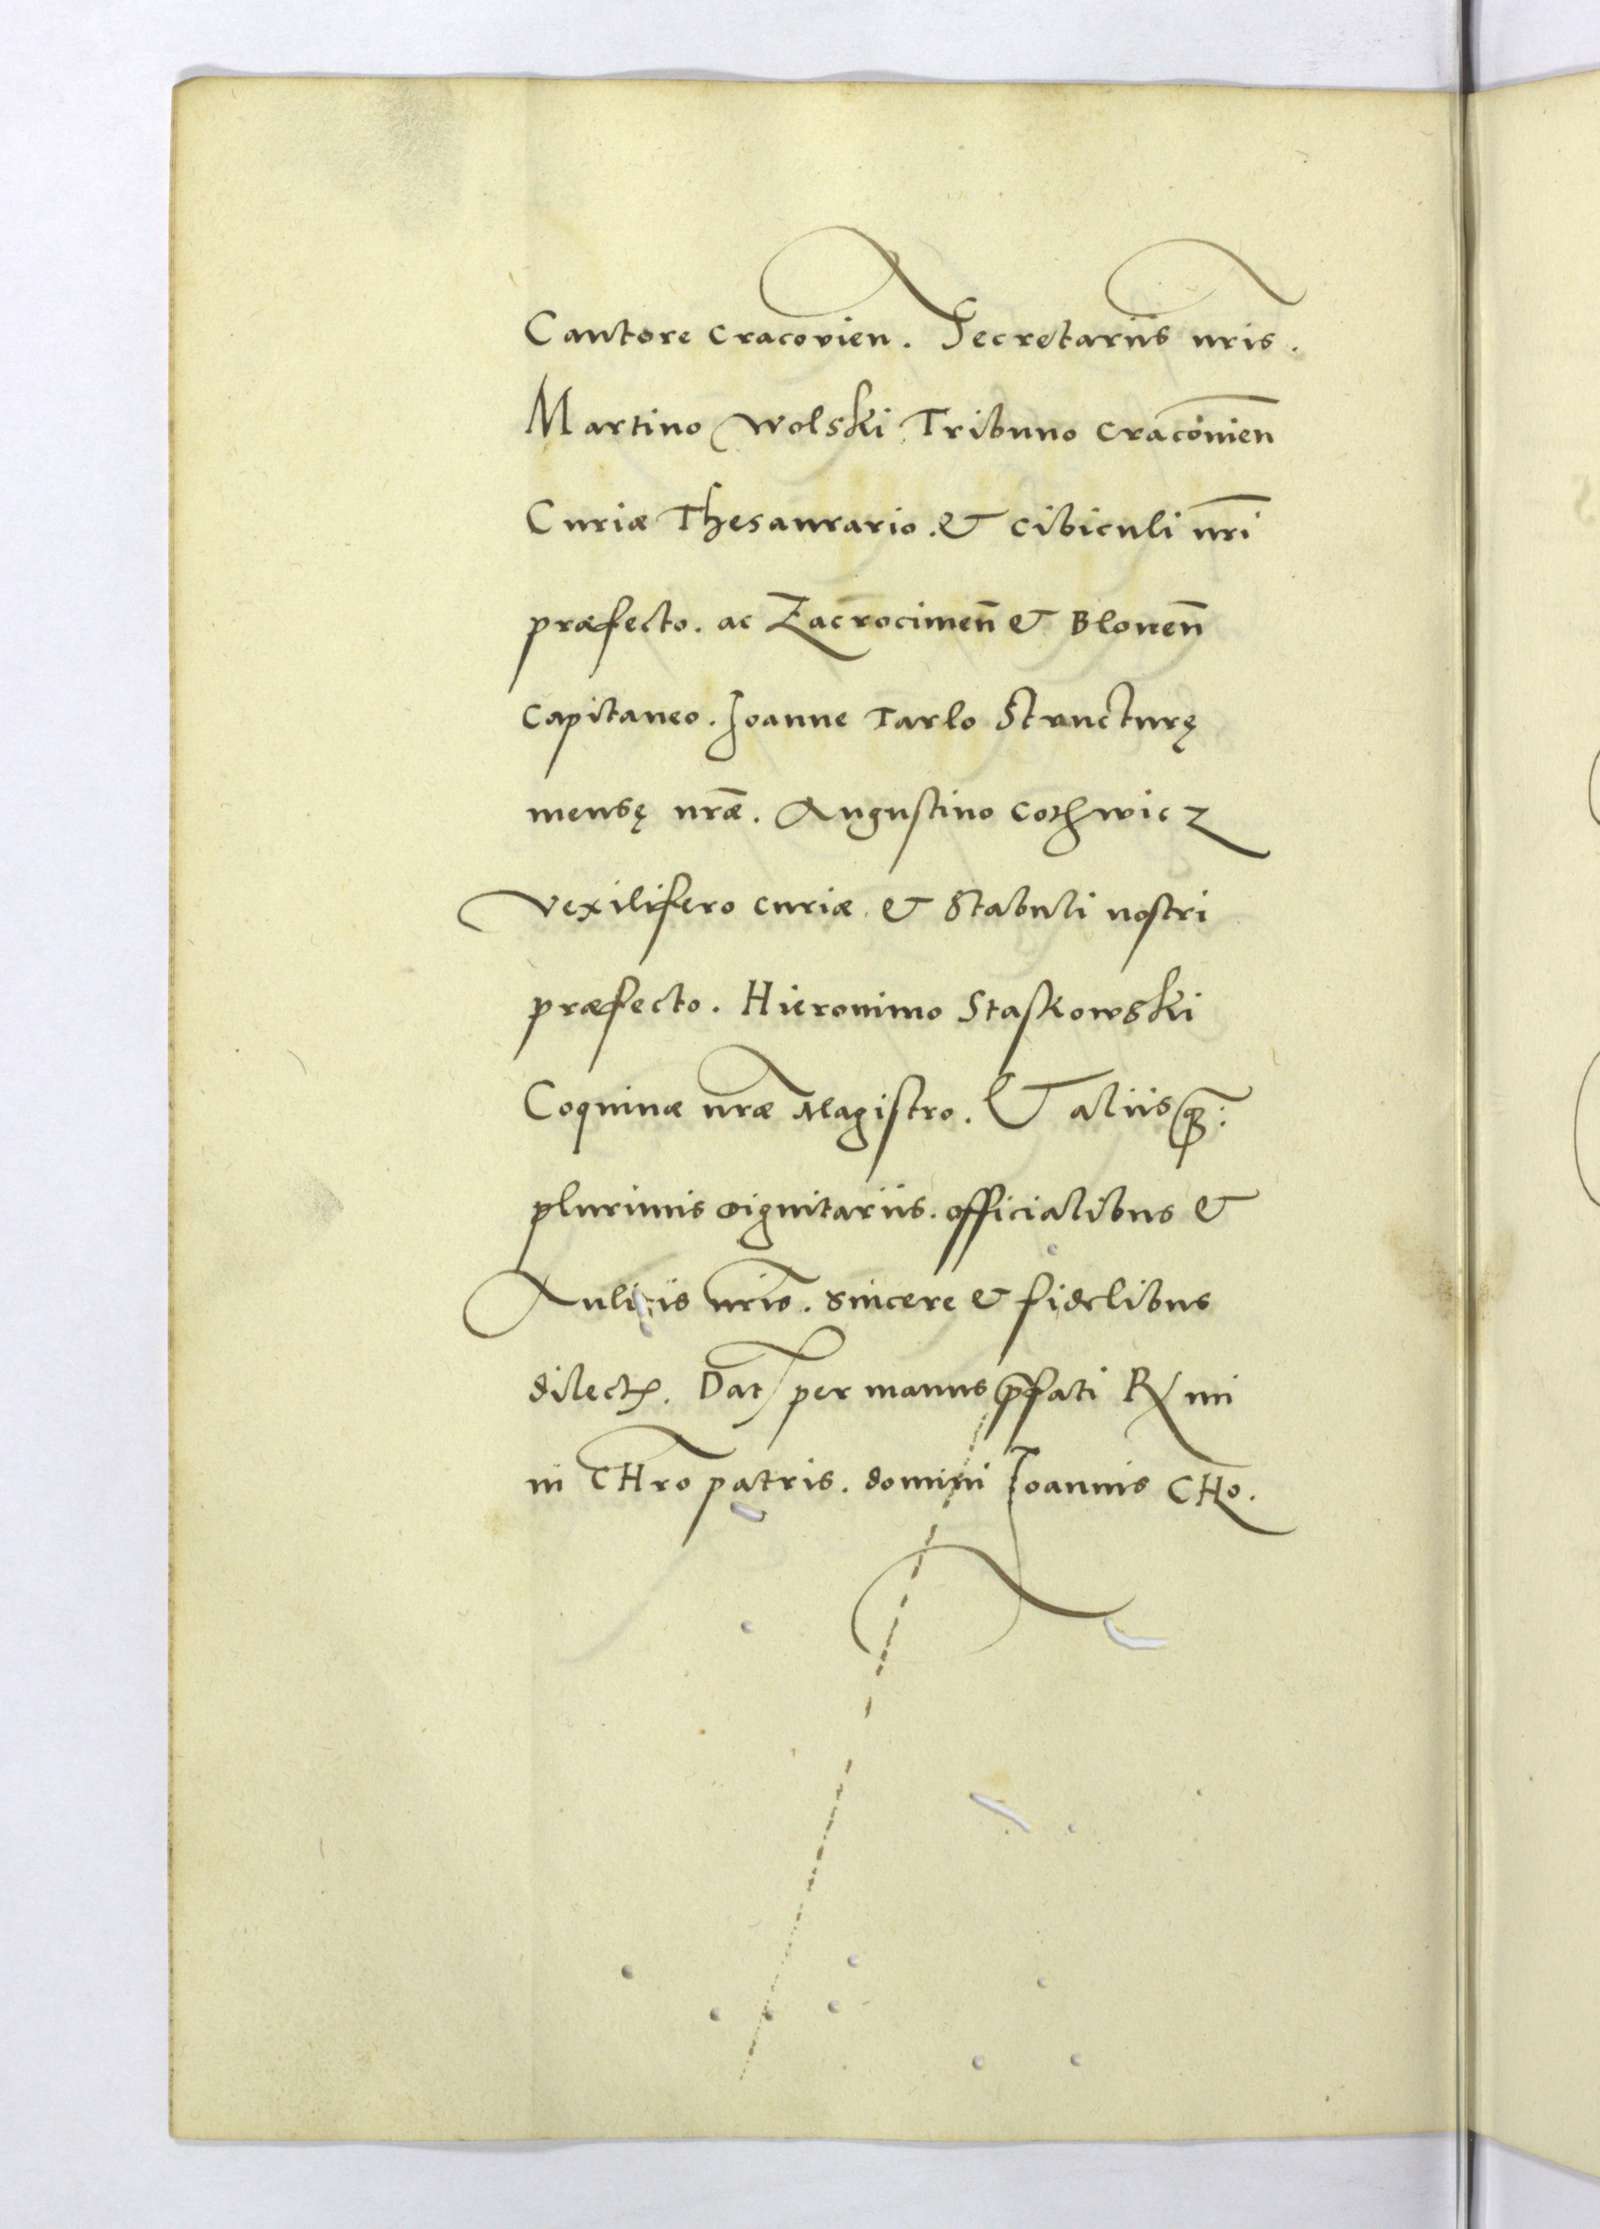 Cantore Cracovien. Secretariis nris.
Martino Wolski Tribuno Cracovien
Curiæ Thesaurario. & cibiculi nri
præfecto. ac Zacrocimen̄ & Blonen̄
Capitaneo. Joanne Tarlo Structurę
mensę nræ. Augustino Cothwicz
Vexilifero curiæ & Stabuli nostri
præfecto. Hieronimo Staskowski
Coquinæ nræ Magistro. & aliis
plurimis dignitariis. officialibus &
Aulicis nris. sincere & fidelibus
dilect. Dat per manus p̄fati Rmi
in CHro patris. domini Joannis CHo.